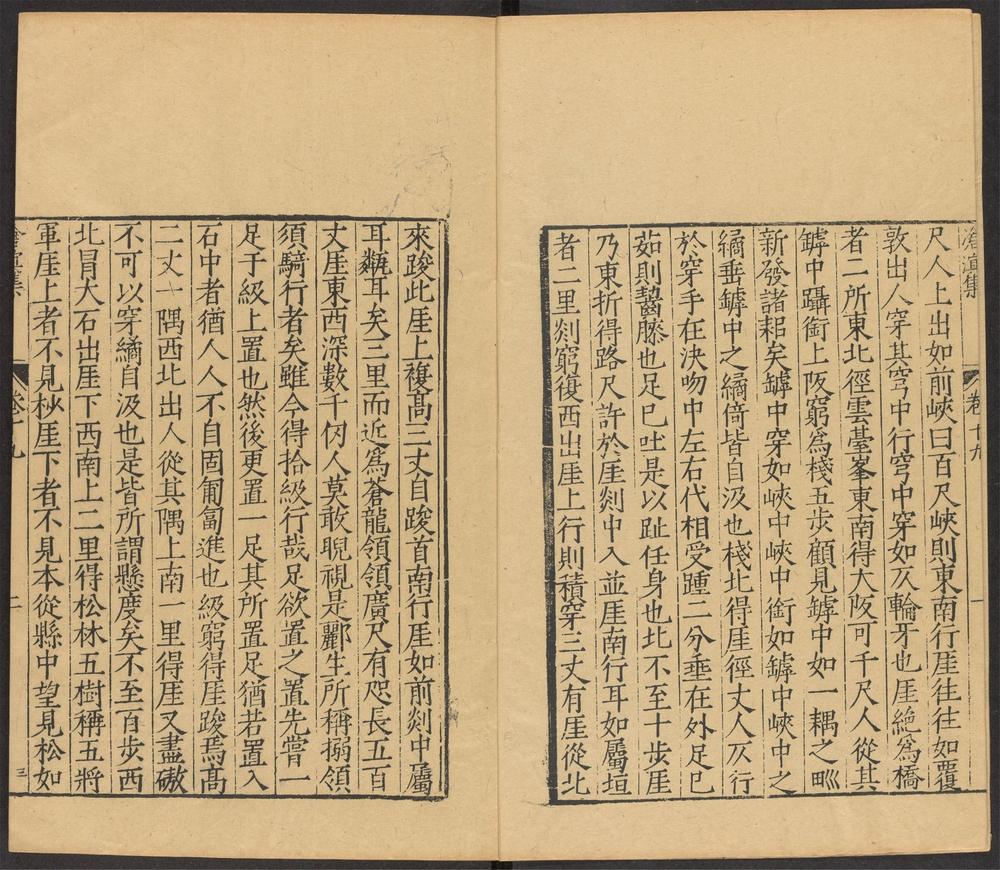 滄溟集
卷十九
一
尺人上出如前峽曰百尺峽則東南行厓往往如覆
敦出人穿其穹中行穹中穿如仄輪牙也厓絶爲橋
者二所東北徑雲臺峯東南得大阪可千尺人從其
罅中躡銜上阪窮爲棧五步顧見罅中如一耦之甽
新發諸耜矣罅中穿如峽中峽中銜如罅中峽中之
繘垂罅中之繘倚皆自汲也棧北得厓徑丈人仄行
於穿手在決吻中左右代相受踵二分垂在外足已
茹則齧膝也足已吐是以趾任身也北不至十步厓
乃東折得路尺許於厓剡中入並厓南行耳如屬垣
者二里剡窮復西出厓上行則積穿三丈有厓從北
來踆此厓上複高三丈自踆首南行厓如前剡中屬
耳甉耳矣三里而近爲蒼龍領領廣尺有咫長五百
丈厓東西深數千仞人莫敢睨視是酈生所稱搦領
須騎行者矣雖今得拾級行哉足欲置之置先嘗一
足于級上置也然後更置一足其所置足猶若置入
石中者猶人人不自固匍匐進也級窮得厓踆焉高
二丈一隅西北出人從其隅上南一里得厓又盡礉
不可以穿繘自汲也是皆所謂懸度矣不至百步西
北冒大石出厓下西南上二里得松林五樹稱五將
軍厓上者不見杪厓下者不見本從縣中望見松如
卷十九
二
三